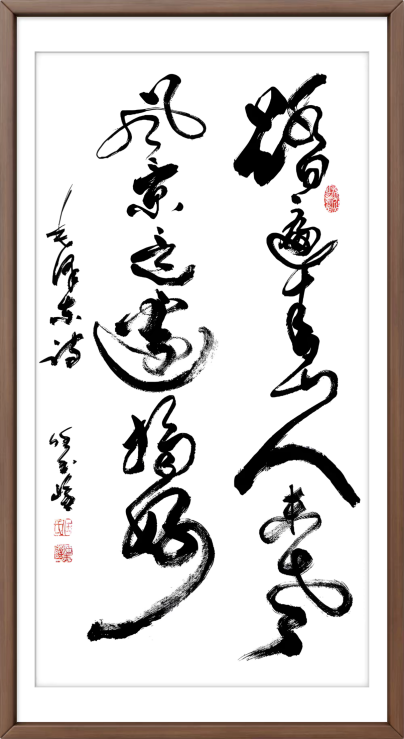 踏遍青山人未老
风景这边独好
毛泽东诗
任玉岭